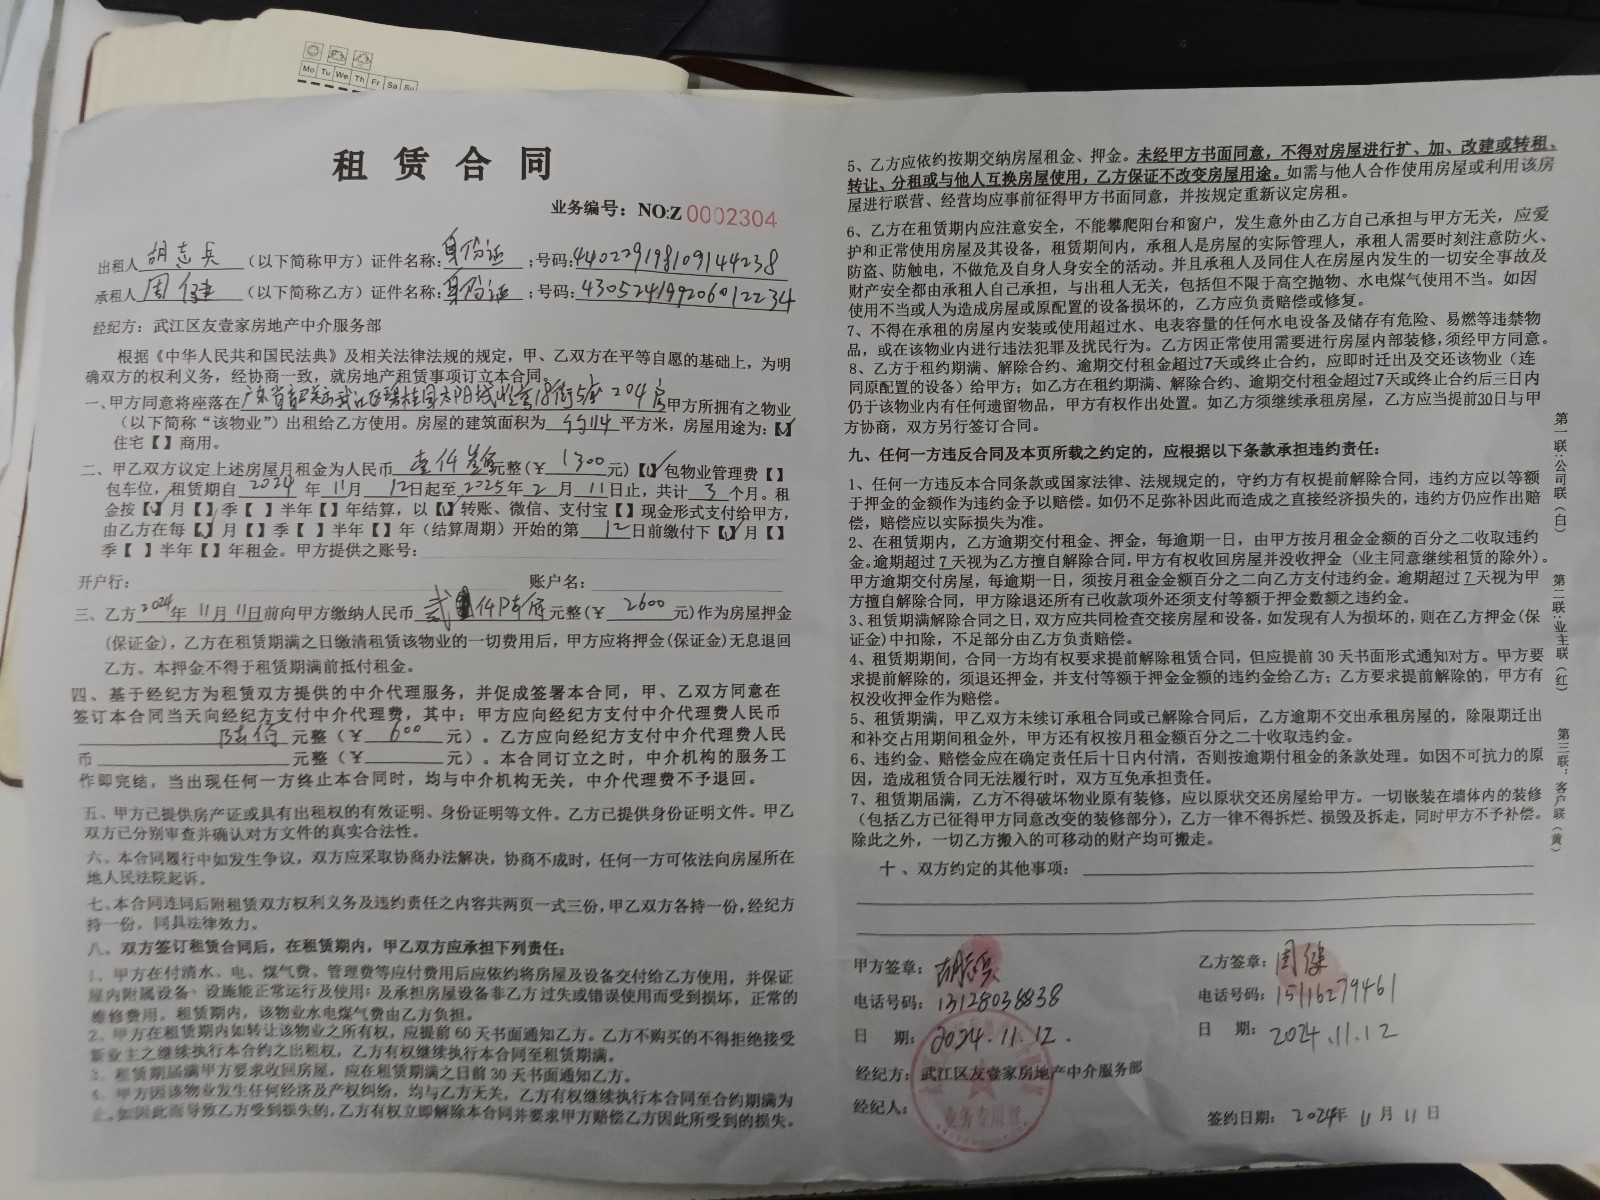 Mo Tu We Th Fr Sa Su
租赁合同
业务编号：NO:Z 0002304
出租人 胡志兵 （以下简称甲方）证件名称：身份证 ；号码：440229198109144238
承租人 周健 （以下简称乙方）证件名称：身份证 ；号码：430524199206012234
经纪方：武江区友壹家房地产中介服务部
根据《中华人民共和国民法典》及相关法律法规的规定，甲、乙双方在平等自愿的基础上，为明
确双方的权利义务，经协商一致，就房地产租赁事项订立本合同。
一、甲方同意将座落在广东省韶关市武江区碧桂园太阳城 街5座204房甲方所拥有之物业
（以下简称“该物业”）出租给乙方使用。房屋的建筑面积为 约114 平方米，房屋用途为：【✓】
住宅【 】商用。
二、甲乙双方议定上述房屋月租金为人民币 壹仟叁佰元整（¥ 1300 元）【✓】包物业管理费【 】
包车位，租赁期自 2024 年 11月 12日起至2025年 2 月 11日止，共计 3 个月。租
金按【✓】月【 】季【 】半年【 】年结算，以【✓】转账、微信、支付宝【 】现金形式支付给甲方，
由乙方在每【✓】月【 】季【 】半年【 】年（结算周期）开始的第 12 日前缴付下【✓】月【 】
季【 】半年【 】年租金。甲方提供之账号：
开户行： 账户名：
三、乙方2024年 11月11日前向甲方缴纳人民币 贰仟陆佰元整（¥ 2600 元）作为房屋押金
（保证金），乙方在租赁期满之日缴清租赁该物业的一切费用后，甲方应将押金（保证金）无息退回
乙方。本押金不得于租赁期满前抵付租金。
四、基于经纪方为租赁双方提供的中介代理服务，并促成签署本合同，甲、乙双方同意在
签订本合同当天向经纪方支付中介代理费，其中：甲方应向经纪方支付中介代理费人民币
陆佰 元整（¥ 600 元）。乙方应向经纪方支付中介代理费人民
币 元整（¥ 元）。本合同订立之时，中介机构的服务工
作即完结，当出现任何一方终止本合同时，均与中介机构无关，中介代理费不予退回。
五、甲方已提供房产证或具有出租权的有效证明、身份证明等文件。乙方已提供身份证明文件。甲乙
双方已分别审查并确认对方文件的真实合法性。
六、本合同履行中如发生争议，双方应采取协商办法解决，协商不成时，任何一方可依法向房屋所在
地人民法院起诉。
七、本合同连同后附租赁双方权利义务及违约责任之内容共两页一式三份，甲乙双方各持一份，经纪方
持一份，同具法律效力。
八、双方签订租赁合同后，在租赁期内，甲乙双方应承担下列责任：
1、甲方在付清水、电、煤气费、管理费等应付费用后应依约将房屋及设备交付给乙方使用，并保证
屋内附属设备、设施能正常运行及使用；及承担房屋设备非乙方过失或错误使用而受到损坏，正常的
维修费用。租赁期内，该物业水电煤气费由乙方负担。
2、甲方在租赁期内如转让该物业之所有权，应提前60天书面通知乙方。乙方不购买的不得拒绝接受
新业主之继续执行本合约之出租权，乙方有权继续执行本合同至租赁期满。
3、租赁期届满甲方要求收回房屋，应在租赁期满之日前30天书面通知乙方。
4、甲方因该物业发生任何经济及产权纠纷，均与乙方无关，乙方有权继续执行本合同至合约期满为
止。如因此而导致乙方受到损失的，乙方有权立即解除本合同并要求甲方赔偿乙方因此所受到的损失。
5、乙方应依约按期交纳房屋租金、押金。未经甲方书面同意，不得对房屋进行扩、加、改建或转租、
转让、分租或与他人互换房屋使用，乙方保证不改变房屋用途。如需与他人合作使用房屋或利用该房
屋进行联营、经营均应事前征得甲方书面同意，并按规定重新议定房租。
6、乙方在租赁期内应注意安全，不能攀爬阳台和窗户，发生意外由乙方自己承担与甲方无关，应爱
护和正常使用房屋及其设备，租赁期间内，承租人是房屋的实际管理人，承租人需要时刻注意防火、
防盗、防触电，不做危及自身人身安全的活动。并且承租人及同住人在房屋内发生的一切安全事故及
财产安全都由承租人自己承担，与出租人无关，包括但不限于高空抛物、水电煤气使用不当。如因
使用不当或人为造成房屋或原配置的设备损坏的，乙方应负责赔偿或修复。
7、不得在承租的房屋内安装或使用超过水、电表容量的任何水电设备及储存有危险、易燃等违禁物
品，或在该物业内进行违法犯罪及扰民行为。乙方因正常使用需要进行房屋内部装修，须经甲方同意。
8、乙方于租约期满、解除合约、逾期交付租金超过7天或终止合约，应即时迁出及交还该物业（连
同原配置的设备）给甲方；如乙方在租约期满、解除合约、逾期交付租金超过7天或终止合约后三日内
仍于该物业内有任何遗留物品，甲方有权作出处置。如乙方须继续承租房屋，乙方应当提前30日与甲
方协商，双方另行签订合同。
九、任何一方违反合同及本页所载之约定的，应根据以下条款承担违约责任：
1、任何一方违反本合同条款或国家法律、法规规定的，守约方有权提前解除合同，违约方应以等额
于押金的金额作为违约金予以赔偿。如仍不足弥补因此而造成之直接经济损失的，违约方仍应作出赔
偿，赔偿应以实际损失为准。
2、在租赁期内，乙方逾期交付租金、押金，每逾期一日，由甲方按月租金金额的百分之二收取违约
金。逾期超过7天视为乙方擅自解除合同，甲方有权收回房屋并没收押金（业主同意继续租赁的除外）。
甲方逾期交付房屋，每逾期一日，须按月租金金额百分之二向乙方支付违约金。逾期超过7天视为甲
方擅自解除合同，甲方除退还所有已收款项外还须支付等额于押金数额之违约金。
3、租赁期满解除合同之日，双方应共同检查交接房屋和设备，如发现有人为损坏的，则在乙方押金（保
证金）中扣除，不足部分由乙方负责赔偿。
4、租赁期期间，合同一方均有权要求提前解除租赁合同，但应提前30天书面形式通知对方。甲方要
求提前解除的，须退还押金，并支付等额于押金金额的违约金给乙方；乙方要求提前解除的，甲方有
权没收押金作为赔偿。
5、租赁期满，甲乙双方未续订承租合同或已解除合同后，乙方逾期不交出承租房屋的，除限期迁出
和补交占用期间租金外，甲方还有权按月租金额百分之二十收取违约金。
6、违约金、赔偿金应在确定责任后十日内付清，否则按逾期付租金的条款处理。如因不可抗力的原
因，造成租赁合同无法履行时，双方互免承担责任。
7、租赁期届满，乙方不得破坏物业原有装修，应以原状交还房屋给甲方。一切嵌装在墙体内的装修
（包括乙方已征得甲方同意改变的装修部分），乙方一律不得拆烂、损毁及拆走，同时甲方不予补偿。
除此之外，一切乙方搬入的可移动的财产均可搬走。
十、双方约定的其他事项：
甲方签章：胡志兵 乙方签章：周健
电话号码：13128038838 电话号码：15116279461
日 期：2024.11.12. 日 期：2024.11.12
经纪方：武江区友壹家房地产中介服务部
经纪人： 签约日期：2024年 11月11日
业务专用章
第一联：公司联（白）
第二联：业主联（红）
第三联：客户联（黄）